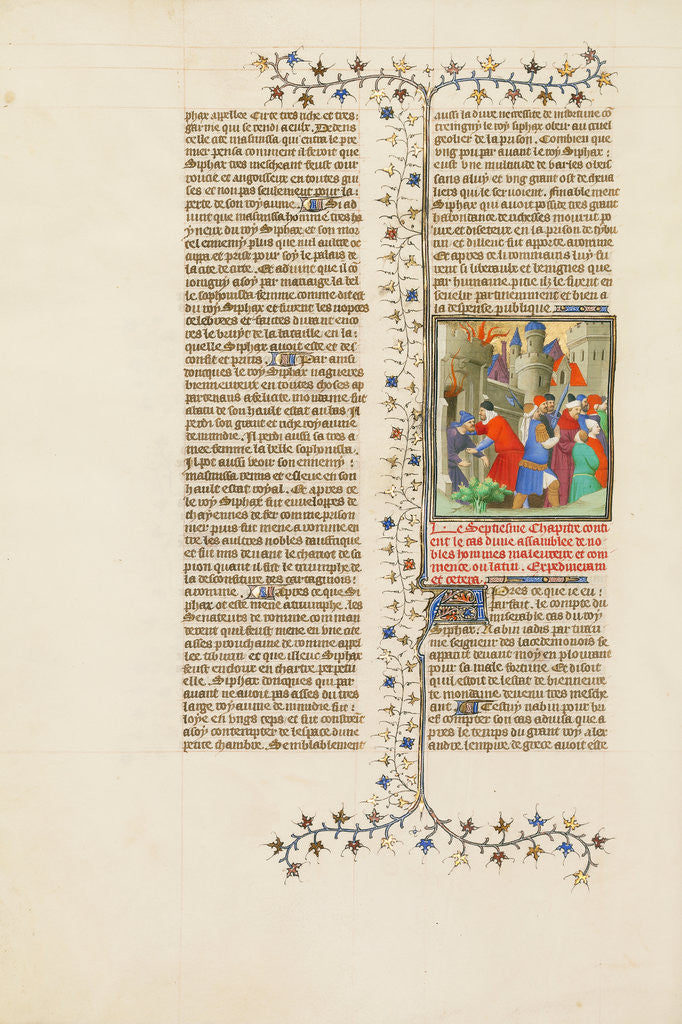 phax appellee Cirte tres riche et tres
garnie qui se rendi a eulx. Dedens
celle cite massinissa qui entra le pre
mier pensa comment il feroit que
Siphax tres meschant feust cour
roucie et angoisseux en toutes gui
ses et non pas seulement pour la
perte de son royaume. Si ad
uint que massinissa homme tres ha
yneux du roy Siphax et son mor
tel ennemy plus que nul aultre oc
cuppa et prist pour soy le palais de
la cite de cirte. Et aduint que il co
ioingny a soy par mariaige la bel
le sophonissa femme comme dit est
du roy Siphax et furent les nopces
celebrees et faictes durant enco
res le bruyt de la bataille en la
quelle Siphax auoit este et des
confit et prins. Par ainsi
doncques le roy Siphax nagueres
bieneureux en toutes choses ap
partenans a felicite mondaine fut
abatu de son hault estat au bas. Il
perdi son grant et riche royaume
de numidie. Il perdi aussi sa tres a
mee femme la belle sophonissa.
Il pot aussi veoir son ennemy
massinissa venus et esleue en son
hault estat royal. Et apres ce
le roy Siphax fut enueloppes de
chayennes de fer comme prison
nier puis fut mene a romme en
tre les aultres nobles daufrique
et fut mis deuant le chariot de sci
pion quant il fist le triumphe de
la desconfiture des cartaginois
a romme. Apres ce que Si
phax ot este mene a triumphe les
Senateurs de romme comman
derent quil feust mene en vne cite
asses prouchaine de romme appel
lee tiburan et que illeuc Siphax
feust encloux en chartre perpetu
elle. Siphax doncques qui par
auant ne auoit pas asses du tres
large royaume de numidie fut
loye en vngs ceps et fut constreit
a soy contempter de lespace dune
petite chambre. Semblablement
aussi la dure necessite de infortune co
treingny le roy siphax obeir au cruel
geolier de la prison. Combien que
vng pou par auant le roy Siphax
eust vne multitude de barles obeis
sans a luy et vng grant ost de cheua
liers qui le seruoient. Finablement
Siphax qui auoit posside tres grant
habondance de richesses mourut po
ure et diseteux en la prison de tybu
rin et dillenc fut apporte a romme.
Et apres ce li rommains luy fu
rent si liberaulx et benignes que
par humaine pitie ilz le firent en
seuelir patiemment et bien a
la despense publique.
Le Septiesme Chapitre conti
ent le cas dune assamblee de no
bles hommes maleureux et com
mence ou latin. Expediueram
et cetera.
Apres ce que ie eu
parfait le compte du
miserable cas du roy
Siphax. Nabin iadis par tiran
nie seigneur des lacedemonois se
apparut deuant moy en plourant
pour sa male fortune. Et disoit
quil estoit de lestat de bieneure
te mondaine deuenu tres mesche
ant. Cestuy nabin pour bri
ef compter son cas aduisa que a
pres le temps du grant roy alex
andre lempire de grece auoit este